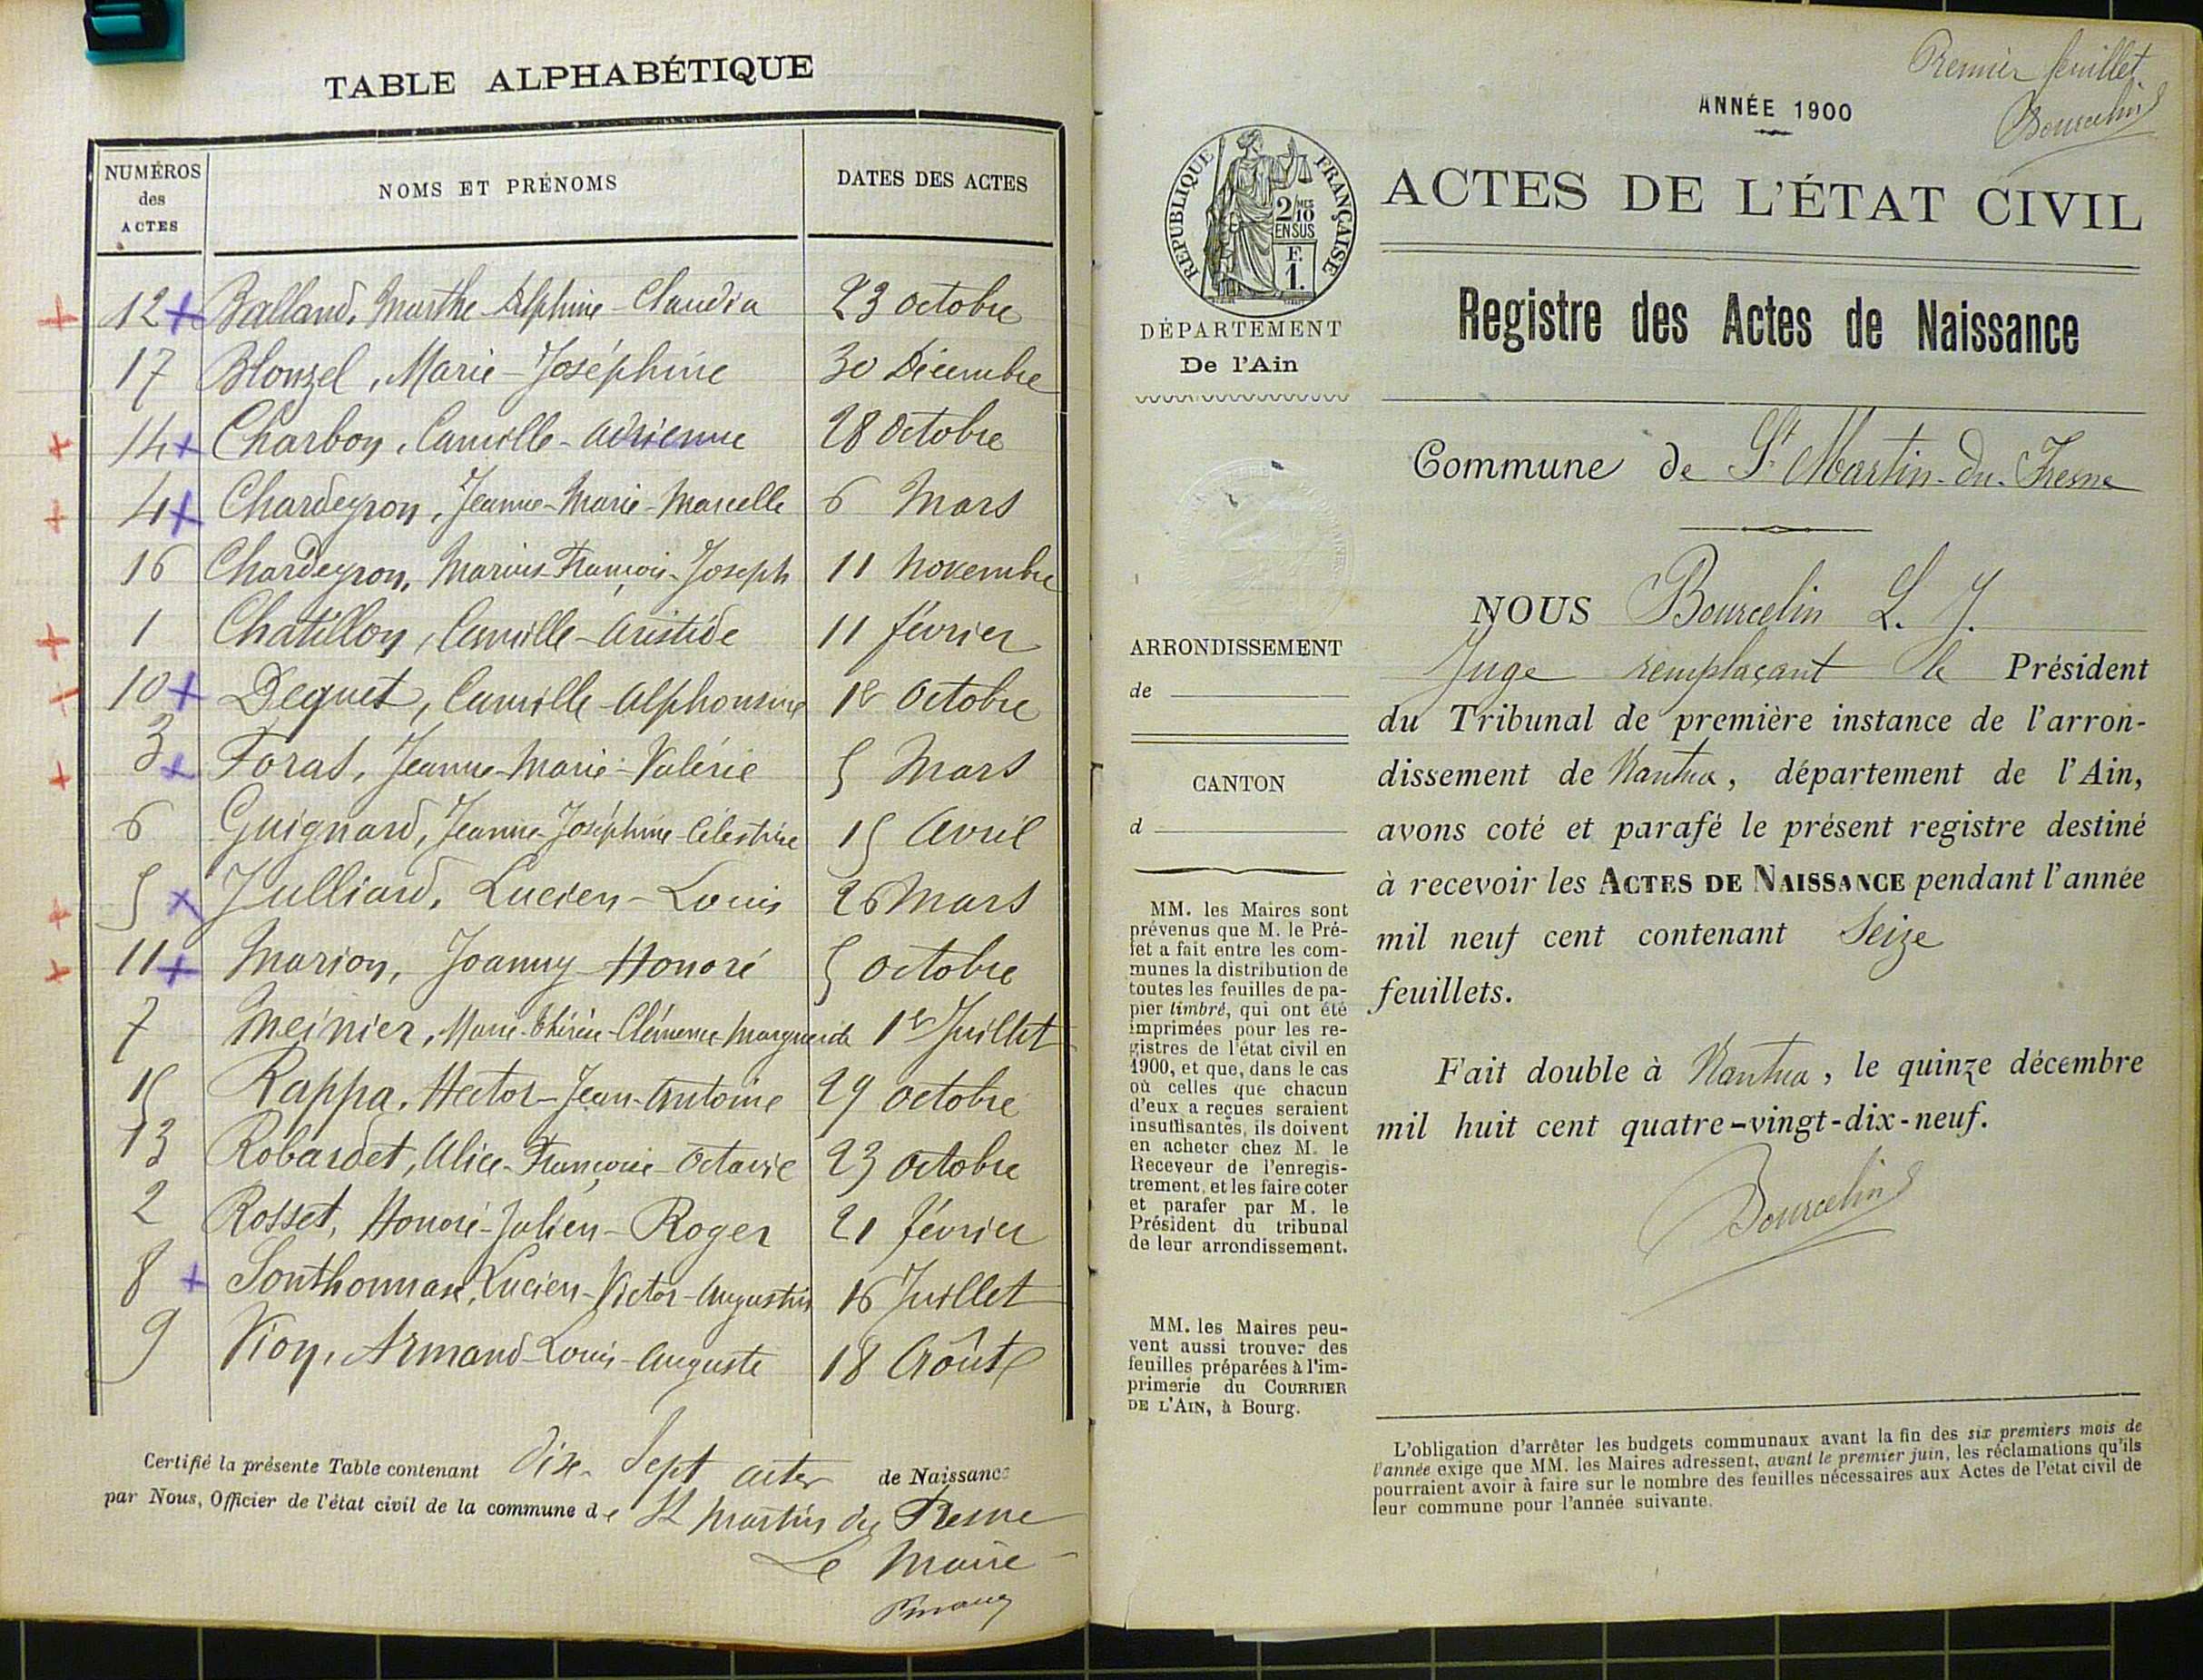 TABLE ALPHABÉTIQUE
NUMÉROS des ACTES NOMS ET PRÉNOMS DATES DES ACTES
12 Balland, Marthe-Delphine-Claudia 23 Octobre
17 Blonzel, Marie-Joséphine 30 Décembre
14 Charbon, Camille-Adrienne 28 Octobre
4 Chardeyron, Jeanne-Marie-Marcelle 6 Mars
16 Chardeyron, Marius-François-Joseph 11 Novembre
1 Chatillon, Camille-Aristide 11 février
10 Deguet, Camille-Alphonsine 1er Octobre
3 Foras, Jeanne-Marie-Valérie 5 Mars
6 Guignard, Jeanne-Joséphine-Célestine 15 Avril
5 Julliard, Lucien-Louis 26 Mars
11 Marion, Joanny-Honoré 5 Octobre
7 Meinier, Marie-Thérèse-Clémence-Marguerite 1er Juillet
15 Rappa, Hector-Jean-Antoine 29 Octobre
13 Robardet, Alice-Françoise-Octavie 23 Octobre
2 Rosset, Honoré-Julien-Roger 21 février
8 Sonthonnax, Lucien-Victor-Augustin 16 Juillet
9 Vion, Armand-Louis-Auguste 18 Août
Certifié la présente Table contenant dix-Sept actes de Naissance
par Nous, Officier de l'état civil de la commune de St Martin du Fresne
Le Maire
Premier feuillet
Bourcelin
ANNÉE 1900
RÉPUBLIQUE FRANÇAISE
2/10 MES
EN SUS
F.
1.
DÉPARTEMENT
De l'Ain
ACTES DE L'ÉTAT CIVIL
Registre des Actes de Naissance
Commune de St Martin-du-Fresne
ARRONDISSEMENT
de
CANTON
d
MM. les Maires sont
prévenus que M. le Pré-
fet a fait entre les com-
munes la distribution de
toutes les feuilles de pa-
pier timbré, qui ont été
imprimées pour les re-
gistres de l'état civil en
1900, et que, dans le cas
où celles que chacun
d'eux a reçues seraient
insuffisantes, ils doivent
en acheter chez M. le
Receveur de l'enregis-
trement, et les faire coter
et parafer par M. le
Président du tribunal
de leur arrondissement.
MM. les Maires peu-
vent aussi trouver des
feuilles préparées à l'im-
primerie du COURRIER
DE L'AIN, à Bourg.
NOUS Bourcelin L. J.
Juge remplaçant le Président
du Tribunal de première instance de l'arron-
dissement de Nantua, département de l'Ain,
avons coté et parafé le présent registre destiné
à recevoir les ACTES DE NAISSANCE pendant l'année
mil neuf cent contenant Seize
feuillets.
Fait double à Nantua, le quinze décembre
mil huit cent quatre-vingt-dix-neuf.
Bourcelin
L'obligation d'arrêter les budgets communaux avant la fin des six premiers mois de
l'année exige que MM. les Maires adressent, avant le premier juin, les réclamations qu'ils
pourraient avoir à faire sur le nombre des feuilles nécessaires aux Actes de l'état civil de
leur commune pour l'année suivante.